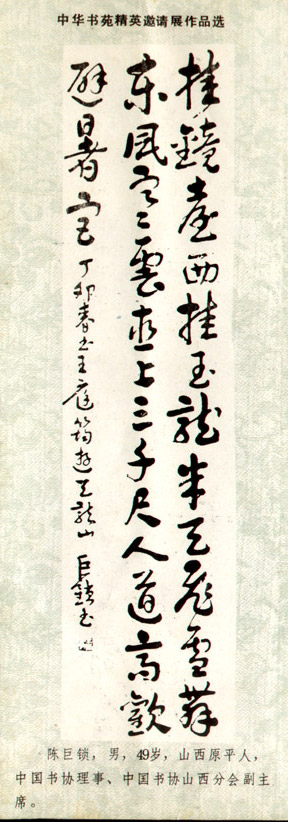 中华书苑精英邀请展作品选
挂鏡臺西挂玉龍半天飛雪舞
東風寒雲直上三千尺人道高歡
避暑宫 丁卯春书王庭筠游天龍山 巨鎖书
陈巨锁，男，49岁，山西原平人，
中国书协理事、中国书协山西分会副主
席。